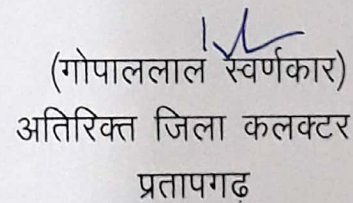 (गोपाललाल स्वर्णकार)
अतिरिक्त जिला कलक्टर
प्रतापगढ़